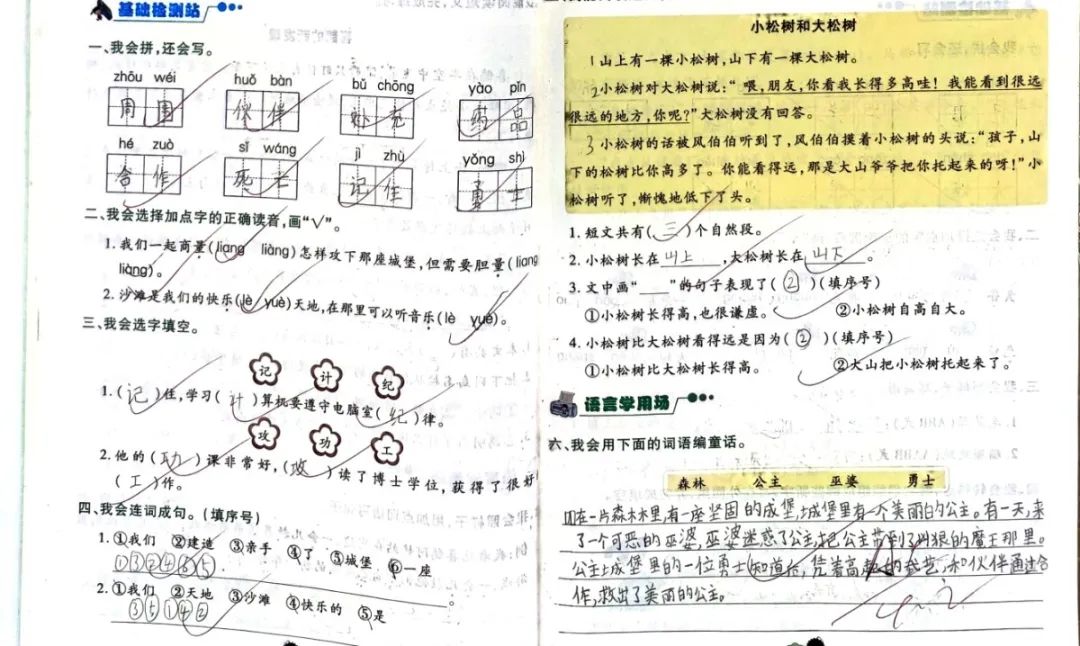 基础检测站
一、我会拼，还会写。
zhōu wéi huǒ bàn bǔ chōng yào pǐn
周围 伙伴 补充 药品
hé zuò sǐ wáng jì zhù yǒng shì
合作 死亡 记住 勇士
二、我会选择加点字的正确读音，画“√”。
1. 我们一起商量(liang liàng)怎样攻下那座城堡，但需要胆量(liang
liàng)。
2. 沙滩是我们的快乐(lè yuè)天地，在那里可以听音乐(lè yuè)。
三、我会选字填空。
记 计 纪
1. (记)住，学习(计)算机要遵守电脑室(纪)律。
攻 功 工
2. 他的(功)课非常好，(攻)读了博士学位，获得了很好
(工)作。
四、我会连词成句。(填序号)
1. ①我们 ②建造 ③亲手 ④了 ⑤城堡 ⑥一座
2. ①我们 ②天地 ③沙滩 ④快乐的 ⑤是
③⑤①④②
小松树和大松树
1 山上有一棵小松树，山下有一棵大松树。
2 小松树对大松树说：“喂，朋友，你看我长得多高哇！我能看到很远
很远的地方，你呢？”大松树没有回答。
3 小松树的话被风伯伯听到了，风伯伯摸着小松树的头说：“孩子，山
下的松树比你高多了。你能看得远，那是大山爷爷把你托起来的呀！”小
松树听了，惭愧地低下了头。
1. 短文共有(三)个自然段。
2. 小松树长在山上，大松树长在山下。
3. 文中画“____”的句子表现了(②)(填序号)
①小松树长得高，也很谦虚。 ②小松树自高自大。
4. 小松树比大松树看得远是因为(②)(填序号)
①小松树比大松树长得高。 ②大山把小松树托起来了。
语言学用场
六、我会用下面的词语编童话。
森林 公主 巫婆 勇士
在一片森林里，有一座坚固的城堡，城堡里有一个美丽的公主。有一天，来
了一个可恶的巫婆，巫婆迷惑了公主，把公主带到了凶狠的魔王那里。
公主城堡里的一位勇士知道后，凭着高超的技艺，和伙伴通过合
作，救出了美丽的公主。